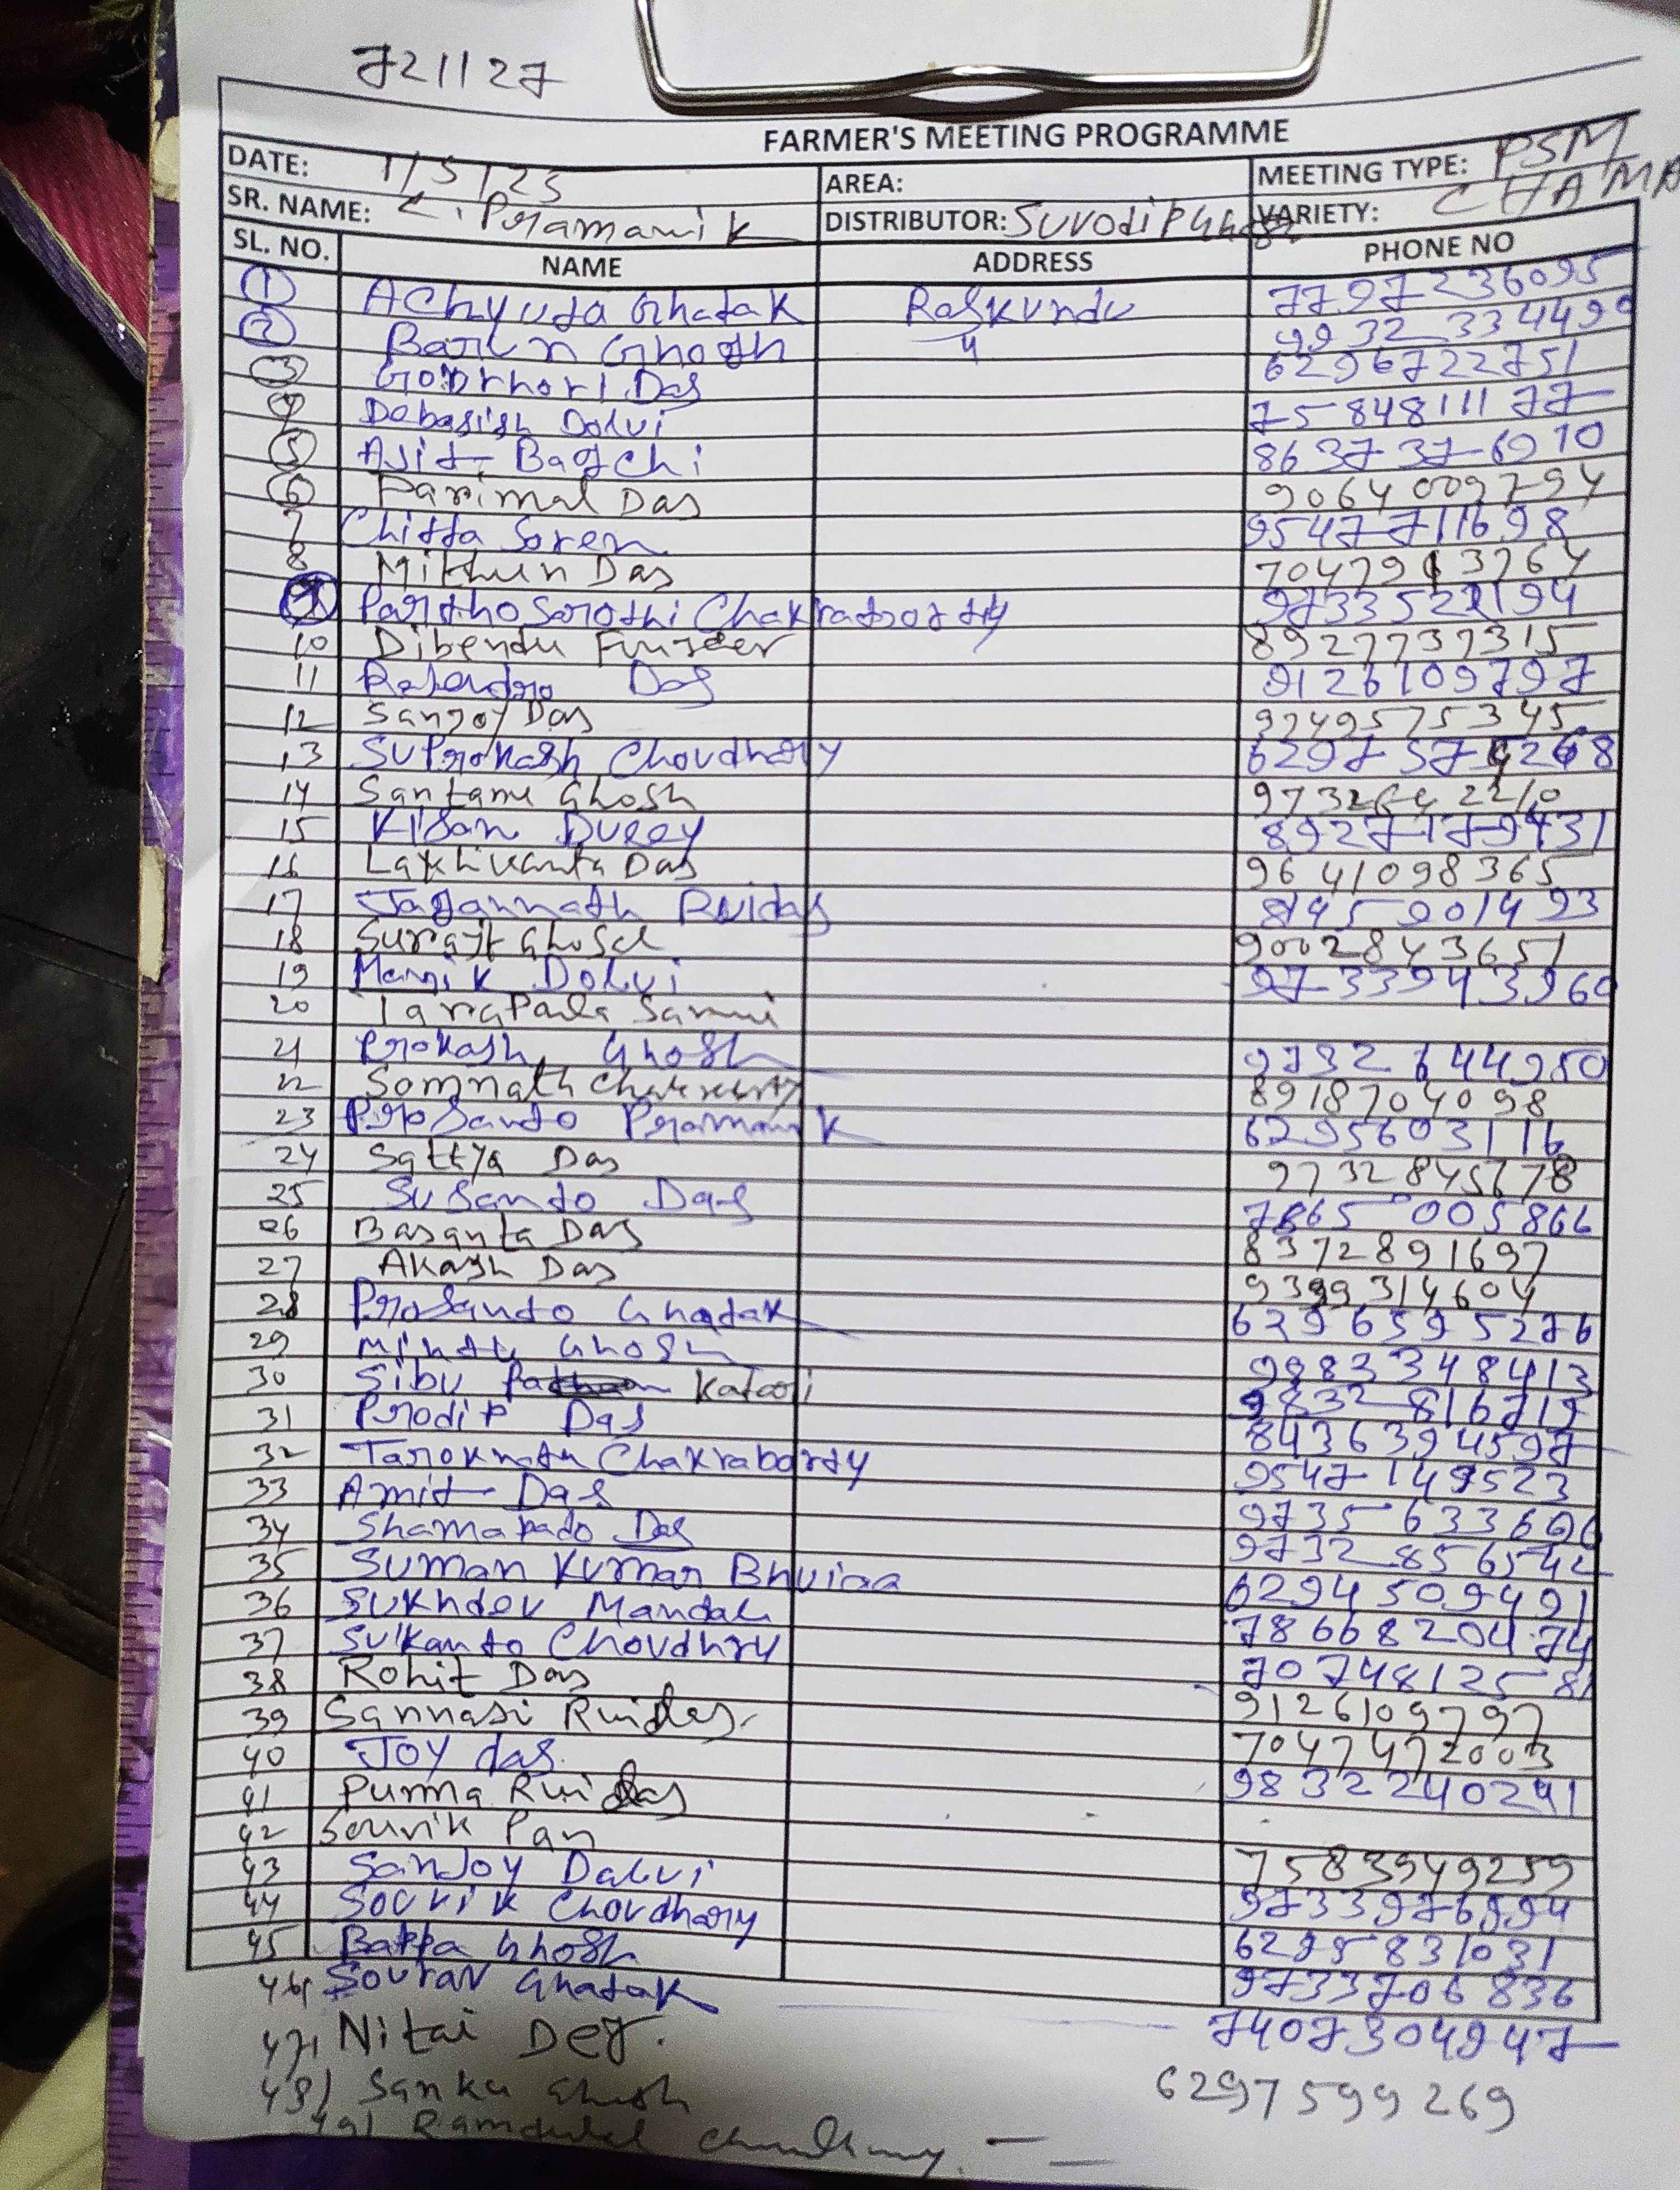 721127
FARMER'S MEETING PROGRAMME
DATE: 1/5/25 AREA: MEETING TYPE: PSM
SR. NAME: Pramanik DISTRIBUTOR: Suvodip Ghosh VARIETY: CHAMP
SL. NO. NAME ADDRESS PHONE NO
1 Achyuta Ghatak Raskundu 7797236095
2 Barun Ghosh 4 993233449
3 Gourhori Das 6296722751
4 Debasish Dolui 7584811177
5 Ajit Bagchi 8637376910
6 Parimal Das 9064009794
7 Chitta Soren 9547711698
8 Mithun Das 7047913764
9 Partho Sarothi Chakraborty 9733521194
10 Dibendu 8927737315
11 Rajendra Das 9126109797
12 Sanjoy Das 9749575345
13 Suprokash Choudhary 6297574268
14 Santanu Ghosh
15 Kisan Dubey 8927179431
16 Laxhikanta Das 9641098365
17 Jagannath Ruidas 8145901493
18 Surajit Ghosh 9002843651
19 Manik Dolui 9733943960
20 Tarapada Sarmi
21 Prokash Ghosh 9732644950
22 Somnath Chakraborty 8918704098
23 Prosanto Pramanik 6295603116
24 Sattya Das 9732845678
25 Susanto Das 7865005866
26 Basanta Das 8372891697
27 Akash Das 9399314604
28 Prosanto Ghatak 6296595276
29 Mintu Ghosh 9983348413
30 Sibu Katari 9832816719
31 Prodip Das 8436394597
32 Taroknath Chakraborty 9547149523
33 Amit Das 9735633696
34 Shamapado Das 9732856542
35 Suman Kumar Bhuiaa 6294509491
36 Sukhdev Mandal 7866820474
37 Sukanto Choudhry 7074812581
38 Rohit Das 9126109797
39 Sannasi Ruidas. 7047472003
40 Joy das. 9832240241
41 Purna Ruidas
42 Souvik Pan 7583949259
43 Sanjoy Dalui 9733976994
44 Souvik Choudhary 6295831031
45 Bappa Ghosh 9733706836
46) Sourav Ghatak 7407304947
47) Nitai Dey. 6297599269
48) Sanku Ghosh
49) Ramdulal Choudhury. —